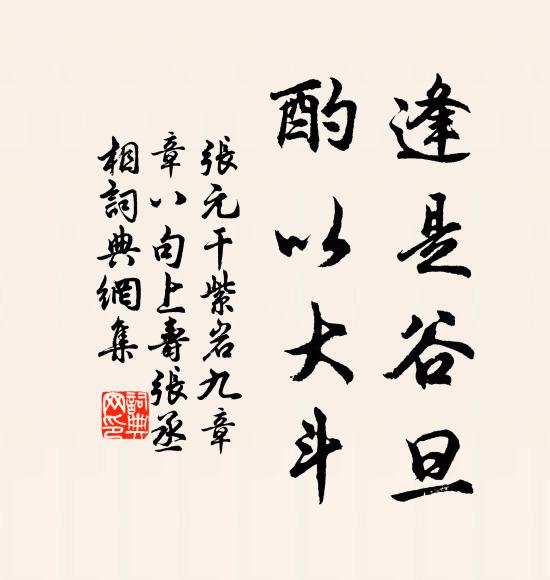 逢是谷旦
酌以大斗
張元干紫岩九章
章八句上壽張丞
相詞典網集
詞典
网印